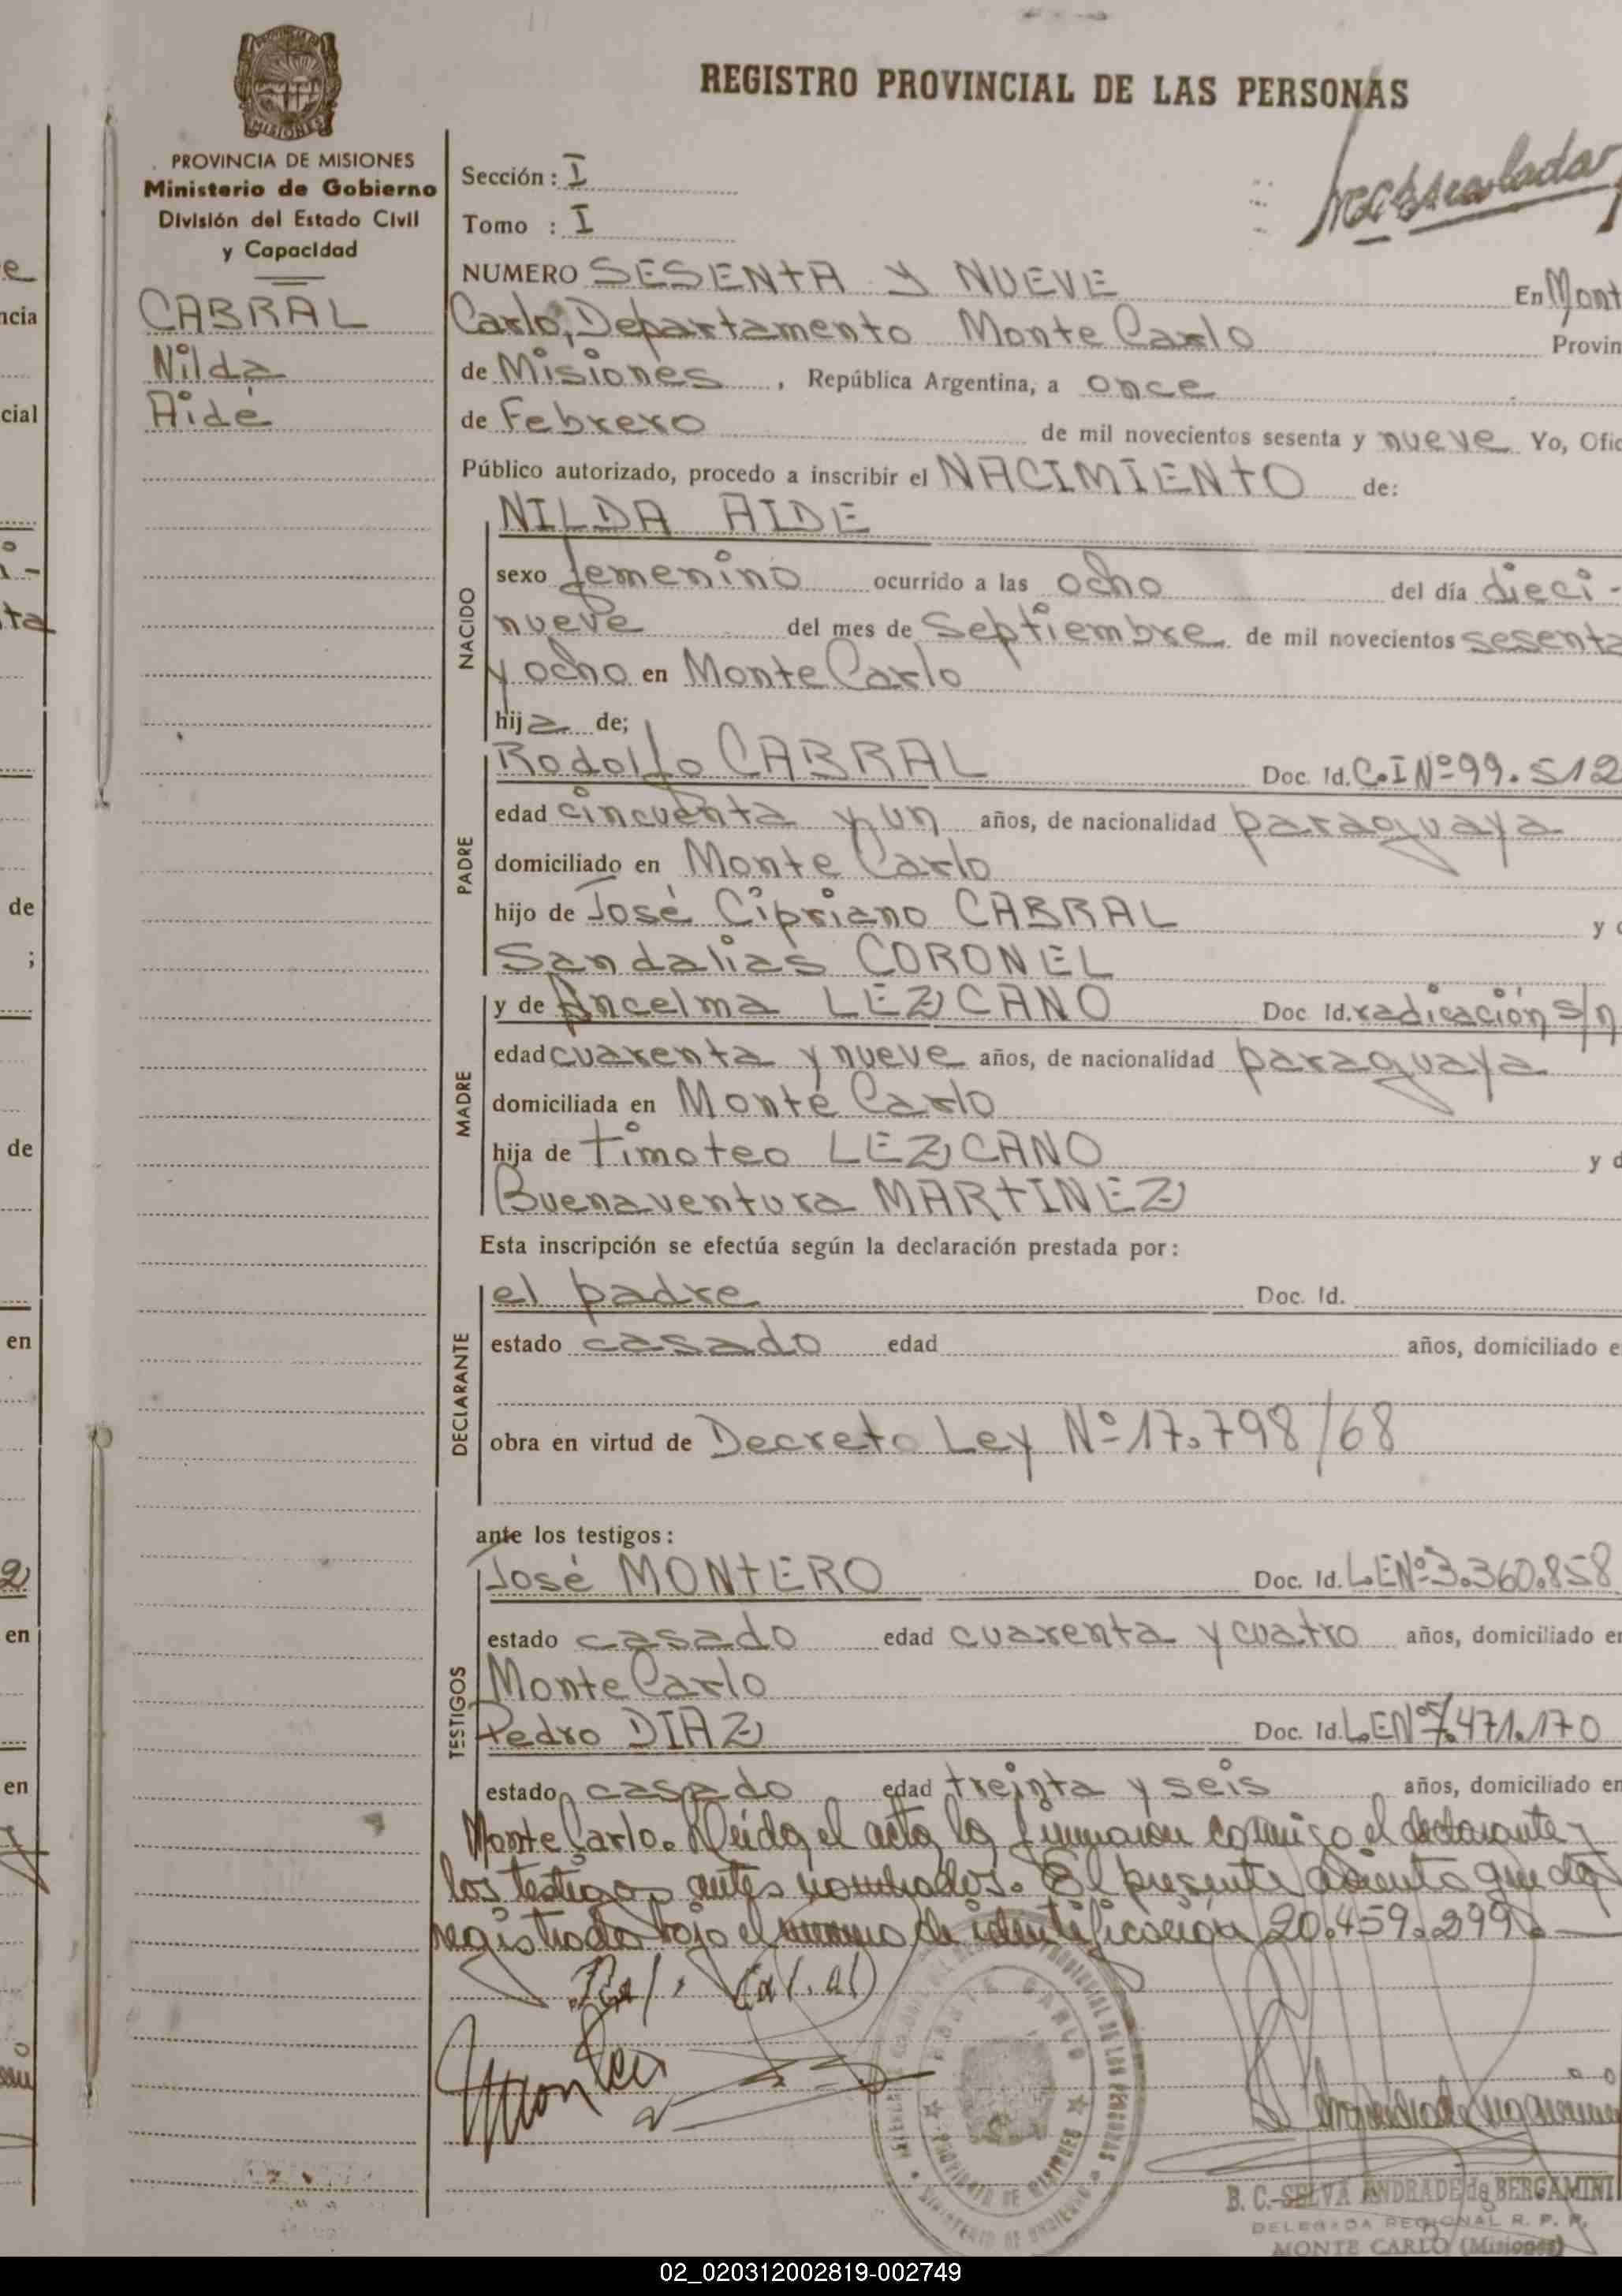 REGISTRO PROVINCIAL DE LAS PERSONAS
PROVINCIA DE MISIONES
Ministerio de Gobierno
División del Estado Civil
y Capacidad
CABRAL
Nilda
Aidé
Sección: I
Tomo : I
NUMERO SESENTA Y NUEVE En Mont
Carlo, Departamento Monte Carlo Provin
de Misiones, República Argentina, a once
de Febrero de mil novecientos sesenta y nueve Yo, Ofic
Público autorizado, procedo a inscribir el NACIMIENTO de:
NACIDO
NILDA AIDE
sexo femenino ocurrido a las ocho del día dieci-
nueve del mes de Septiembre de mil novecientos sesenta
y ocho en Monte Carlo
hija de;
PADRE
Rodolfo CABRAL Doc. Id. C.I Nº 99.512
edad cincuenta y un años, de nacionalidad paraguaya
domiciliado en Monte Carlo
hijo de José Cipriano CABRAL y d
Sandalias CORONEL
MADRE
y de Ancelma LEZCANO Doc Id. radicación s/n
edad cuarenta y nueve años, de nacionalidad paraguaya
domiciliada en Monte Carlo
hija de Timoteo LEZCANO y d
Buenaventura MARTINEZ
Esta inscripción se efectúa según la declaración prestada por:
DECLARANTE
el padre Doc. Id.
estado casado edad años, domiciliado e
obra en virtud de Decreto Ley Nº 17.798/68
ante los testigos:
TESTIGOS
José MONTERO Doc. Id. LE Nº 3.360.858
estado casado edad cuarenta y cuatro años, domiciliado en
Monte Carlo
Pedro DIAZ Doc. Id. LE Nº 7.471.170
estado casado edad treinta y seis años, domiciliado en
Monte Carlo. Leída el acta la firmaron conmigo el declarante y
los testigos antes nombrados. El presente asiento queda
registrado bajo el número de identificación 20.459.299.
B. C. SELVA ANDRADE de BERGAMINI
DELEGADA REGIONAL R. P. P.
MONTE CARLO (Misiones)
02_020312002819-002749